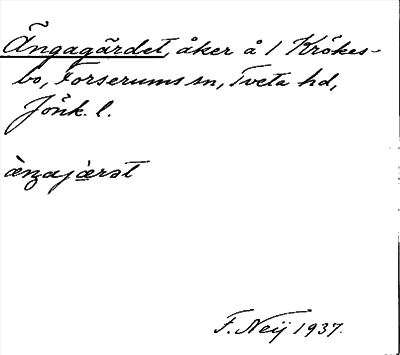 Ängagärdet, åker å 1 Krökes-
bo, Forserums sn, Tveta hd,
Jönk. l.
ànɡajærət
F. Neij 1937.